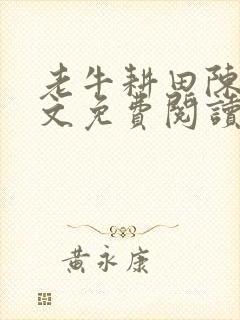 老牛耕田陳
文免費閱讀
黃永康